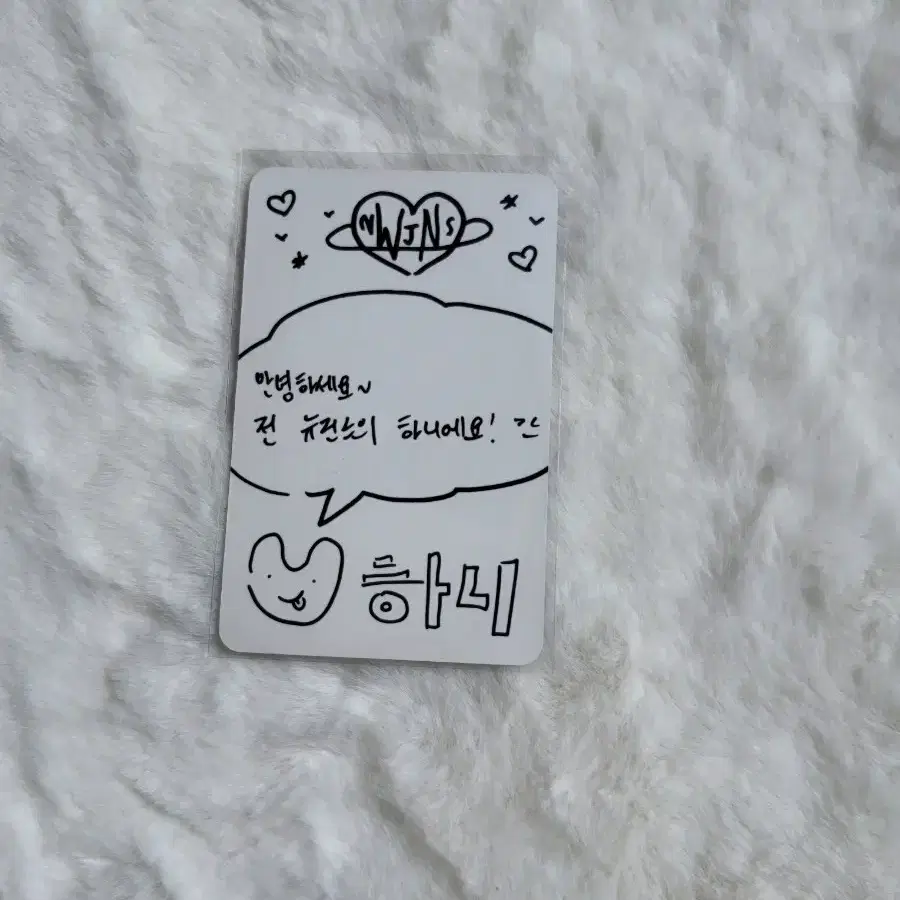 NWJNS
안녕하세요~
전 뉴진스의 하니에요!
하니